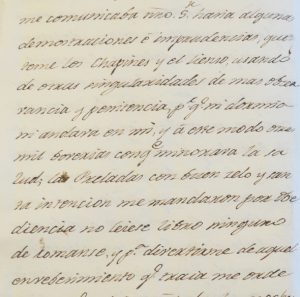 me comunicaba nro. Sr. haria algunas
demostraciones è imprudencias, que-
teme los chapines y el lienso, usando
de otras singularidades de mas obser
vancia y penitencia, pr. q. ni dormia
ni andava en mi, y à este modo mu
mil boverias conq. minorava la sa
lud; las Preladas con buen zelo y san
ta intencion me mandaron por Obe
diencia no leiese libro ninguno
de romanse, y pa. divertirme de aquel
envebesimiento q. traia me orde